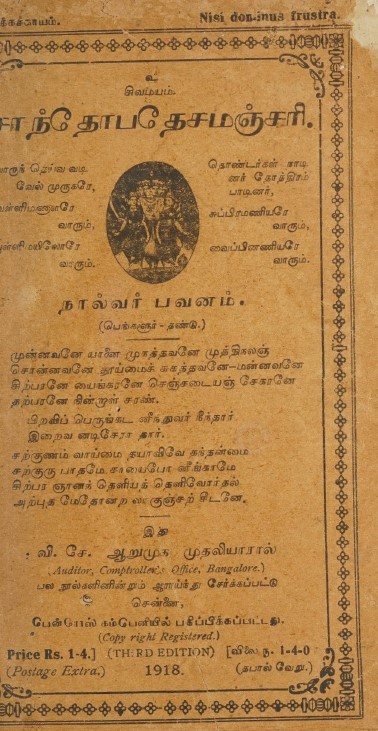 Nisi dominus frustra.
உ
சிவமயம்.
சாந்தோபதேசமஞ்சரி.
வாருந் தெய்வ வடி
வேல் முருகரே,
வள்ளிமணாளரே
வாரும்,
புள்ளிமயிலோரே
வாரும்.
தொண்டர்கள் நாடி
னர் தோத்திரம்
பாடினர்,
சுப்பிரமணியரே
வாரும்,
வைப்பிணணியரே
வாரும்.
நால்வர் பவனம்.
(பெங்களூர் - தண்டு.)
முன்னவனே யானை முகத்தவனே முத்திநலஞ்
சொன்னவனே தூய்மைச் சுகத்தவனே—மன்னவனே
சிற்பரனே யைங்கரனே செஞ்சடையஞ் சேகரனே
தற்பரனே நின்றாள் சரண்.
பிறவிப் பெருங்கட னீந்துவர் நீந்தார்.
இறைவ னடிசேரா தார்.
சற்குணம் வாய்மை தயாவிவே கந்தன்மை
சற்குரு பாதமே சாயைபோ னீங்காமே
சிற்பர ஞானந் தெளியத் தெளிவோர்தல்
அற்புத மேதோன்ற லாகுஞ்சற் சீடனே.
இஃது
வி. சே. ஆறுமுக முதலியாரால்
(Auditor, Comptroller's Office, Bangalore.)
பல நூல்களினின்றும் ஆராய்ந்து சேர்க்கப்பட்டு
சென்னை,
பென்ரோஸ் கம்பெனியில் பதிப்பிக்கப்பட்டது.
(Copy right Registered.)
Price Rs. 1-4.] (THIRD EDITION) [விலை ரூ. 1-4-0
(Postage Extra.) 1918. (தபால் வேறு.)